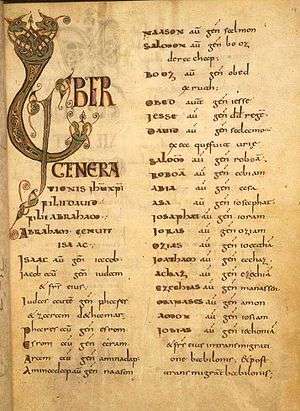 LIBER
GENERA
TIONIS IHU XPI
FILII DAUID
FILII ABRAHAM
ABRAHAM GENUIT
ISAAC
Isaac aū geñ iacob
Iacob aū geñ iudam
& fr̄s eius
Iudas aū geñ phares
& zaram dethamar
Phares aū geñ esrom
Esrom aū geñ aram
Aram aū geñ aminadap
Aminadap aū geñ naason
Naason aū geñ salmon
Salomon aū geñ booz
derachap
Booz aū geñ obed
exruth
Obed aūt geñ iesse
Iesse aū geñ dd̄ regē
Dauid aū geñ salomo
ex ea que fuit urie
Salom̄ aū geñ roboā
Roboā aū geñ abiam
Abia aū geñ asa
Asa aū geñ iosaphat
Iosaphat aū geñ ioram
Ioras aū geñ oziam
Ozias aū geñ ioathā
Ioatham aū geñ achaz
Achaz aū geñ ezechiā
Ezechias aū geñ manassen
Manases aū geñ amon
Amon aū geñ iosiam
Iosias aū geñ iechoniā
& fr̄s eius intransmigrati
one babilonis, & post
transmigrat̄ babilonis;